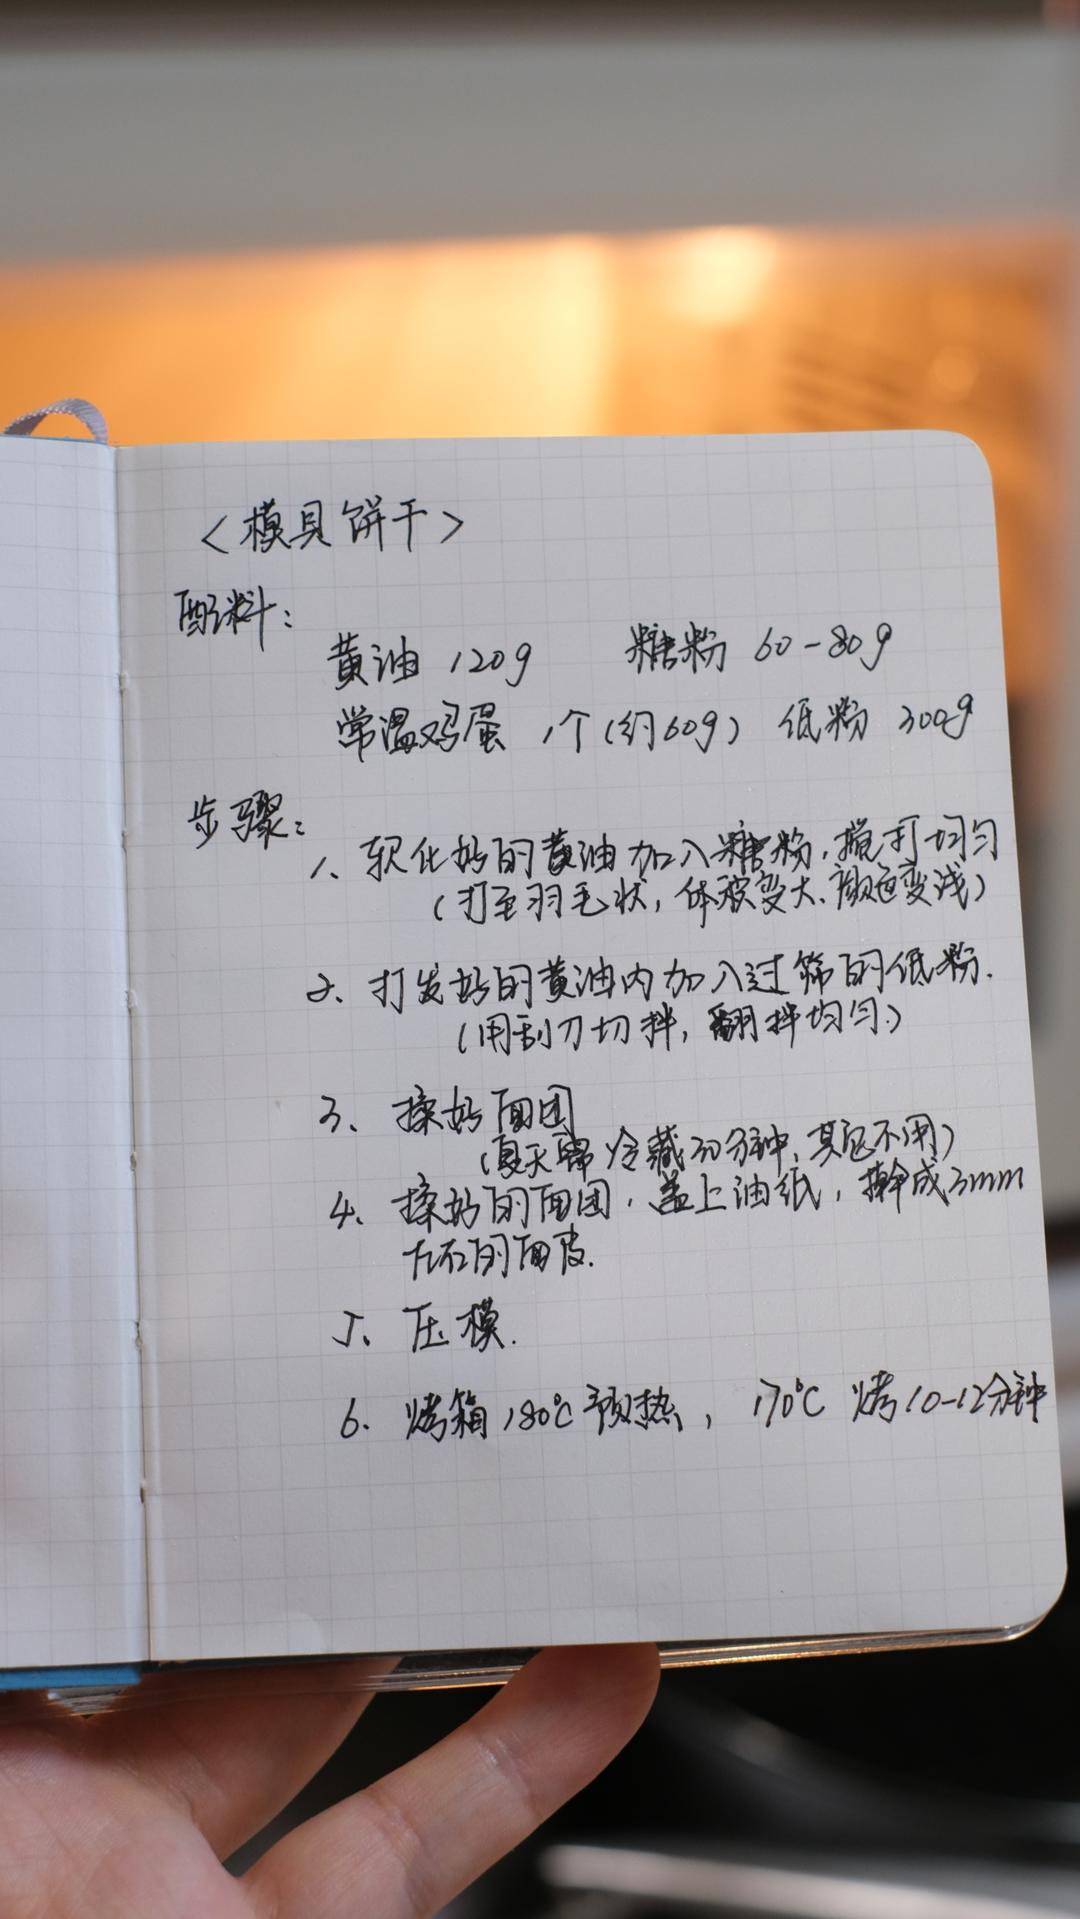 <模具饼干>
配料:
黄油 120g 糖粉 60-80g
常温鸡蛋 1个(约60g) 低粉 300g
步骤:
1、软化好的黄油加入糖粉,搅打均匀
(打至羽毛状,体积变大、颜色变浅)
2、打发好的黄油内加入过筛的低粉.
(用刮刀切拌,翻拌均匀.)
3、揉好面团
(夏天需冷藏30分钟、其他不用)
4、揉好的面团,盖上油纸,擀成3mm
左右的面皮.
5、压模.
6、烤箱180℃预热, 170℃ 烤10-12分钟